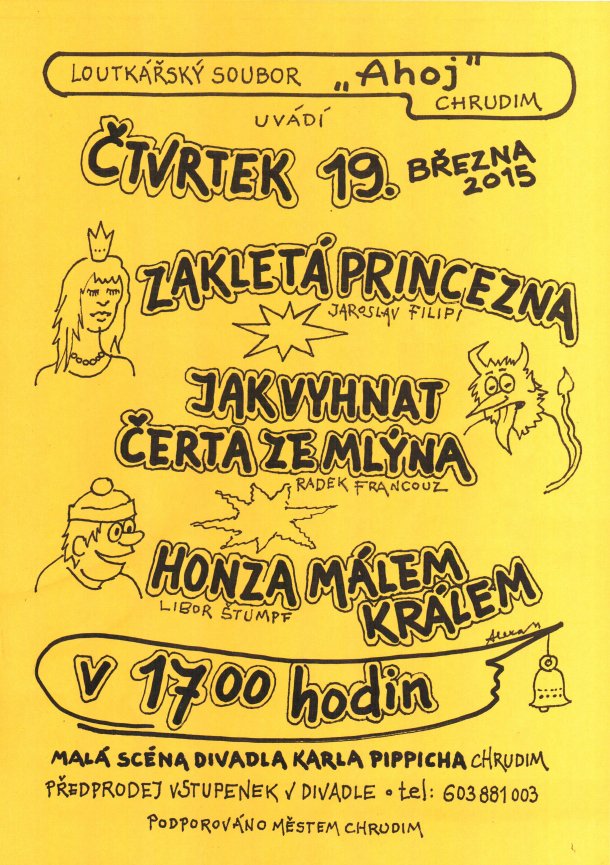 LOUTKÁŘSKÝ SOUBOR „Ahoj"
CHRUDIM
UVÁDÍ
ČTVRTEK 19. BŘEZNA
2015
ZAKLETÁ PRINCEZNA
JAROSLAV FILIPI
JAK VYHNAT
ČERTA ZE MLÝNA
RADEK FRANCOUZ
HONZA MÁLEM
KRÁLEM
LIBOR ŠTUMPF
v 17 00 hodin
MALÁ SCÉNA DIVADLA KARLA PIPPICHA CHRUDIM
PŘEDPRODEJ VSTUPENEK V DIVADLE • tel: 603 881 003
PODPOROVÁNO MĚSTEM CHRUDIM